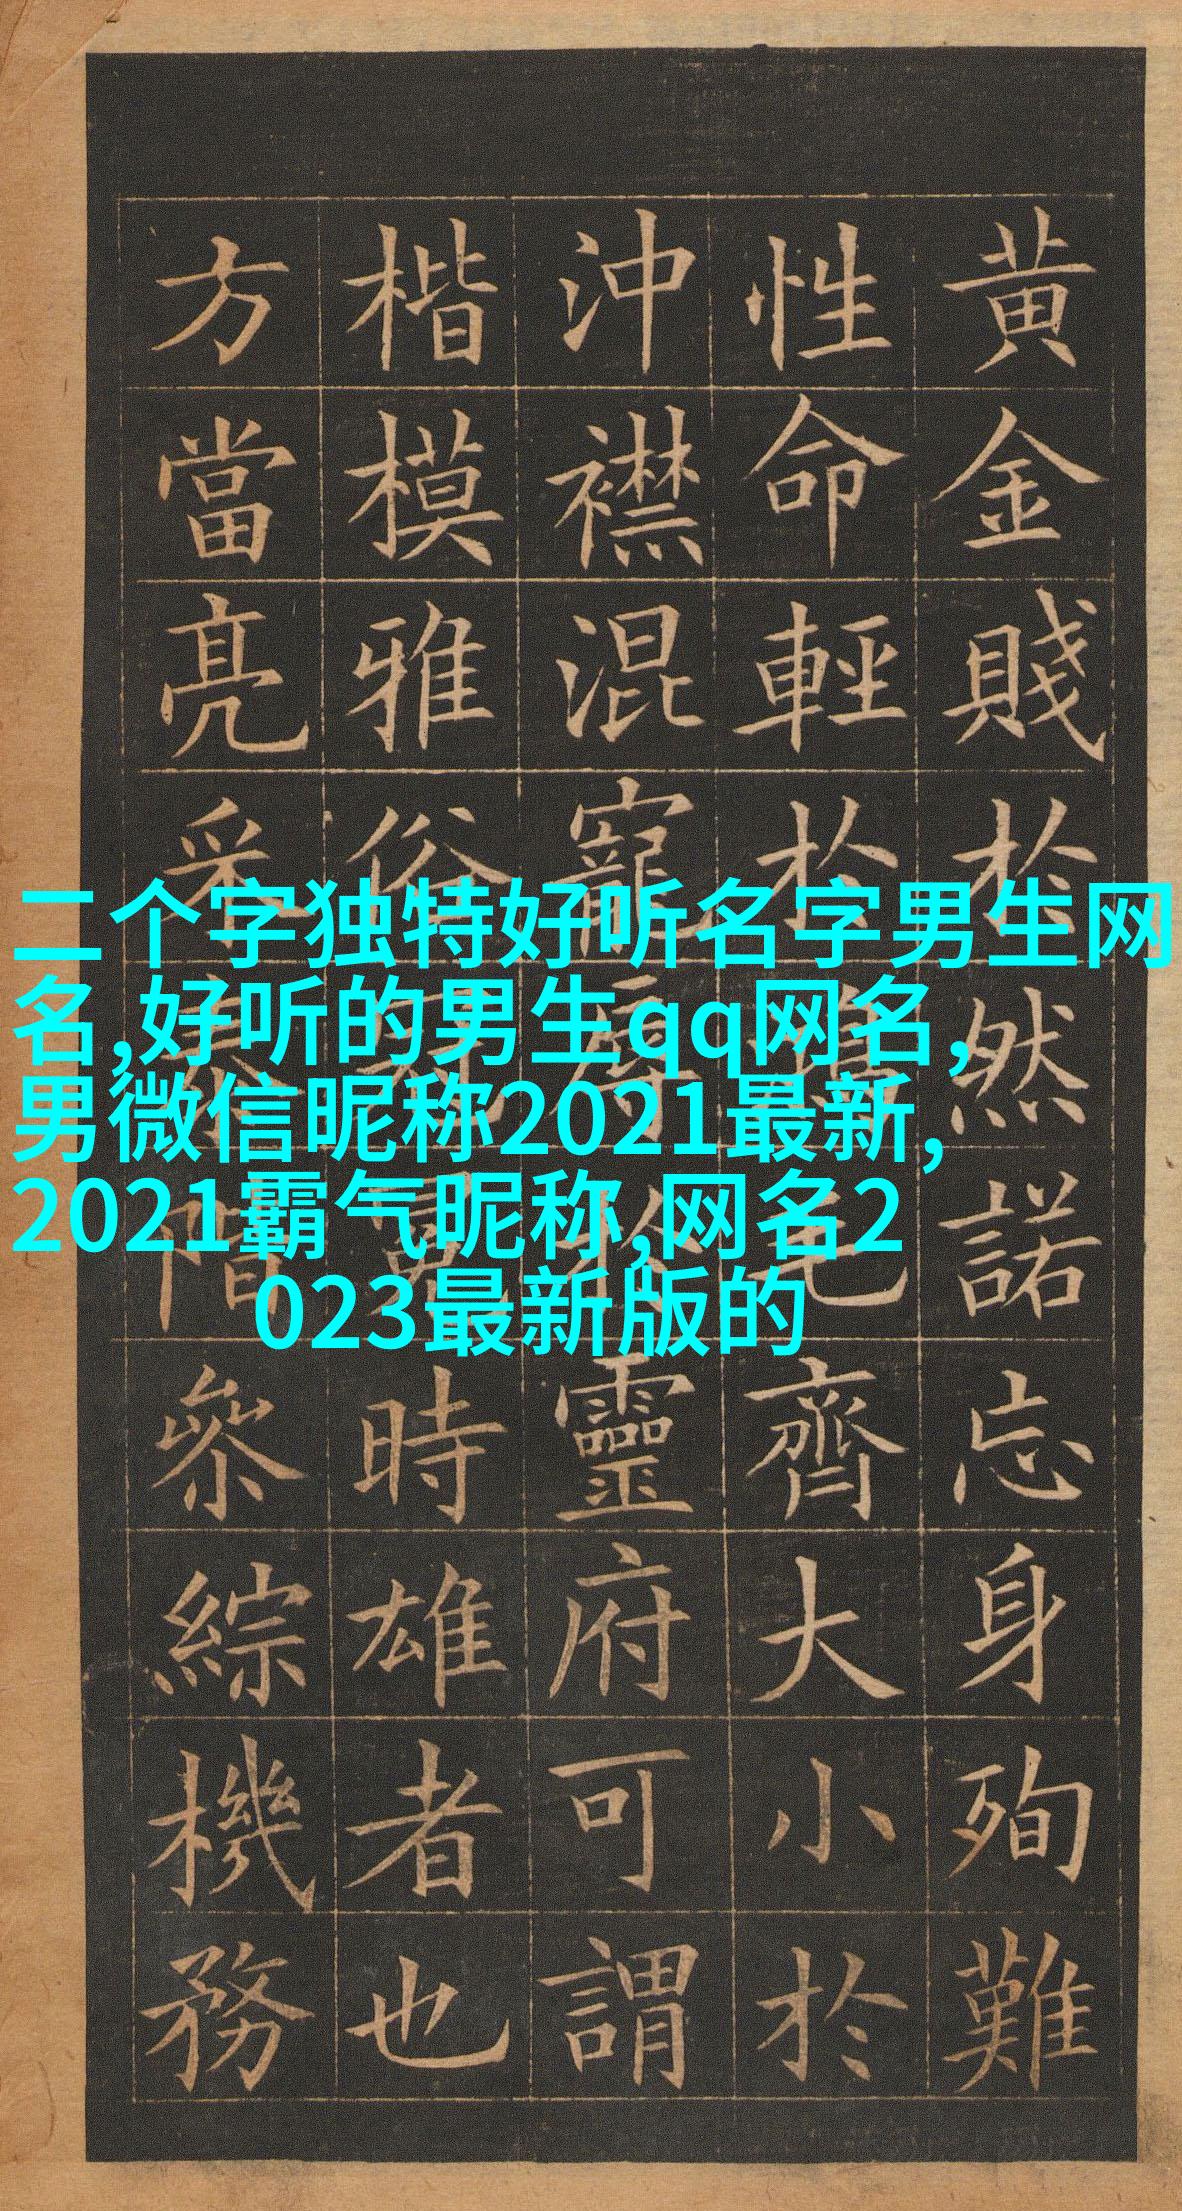 二个字独特好听名字男生网
名,好听的男生qq网名,
男微信昵称2021最新,
2021霸气昵称,网名2
023最新版的
黄金賤於然諾忘身殉難
性命輕於毛齊大小於
沖襟混寵於靈府可謂
楷模雅俗時雄者也
方當亮采階參綜機務